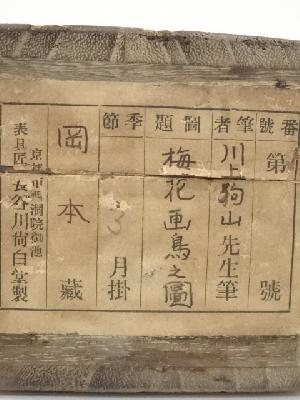 番號
第 號
筆者
川上駒山先生筆
圖題
梅花画鳥之圖
季節
3月掛
岡本藏
京都市西洞院御池
表具匠 長谷川尚白堂製